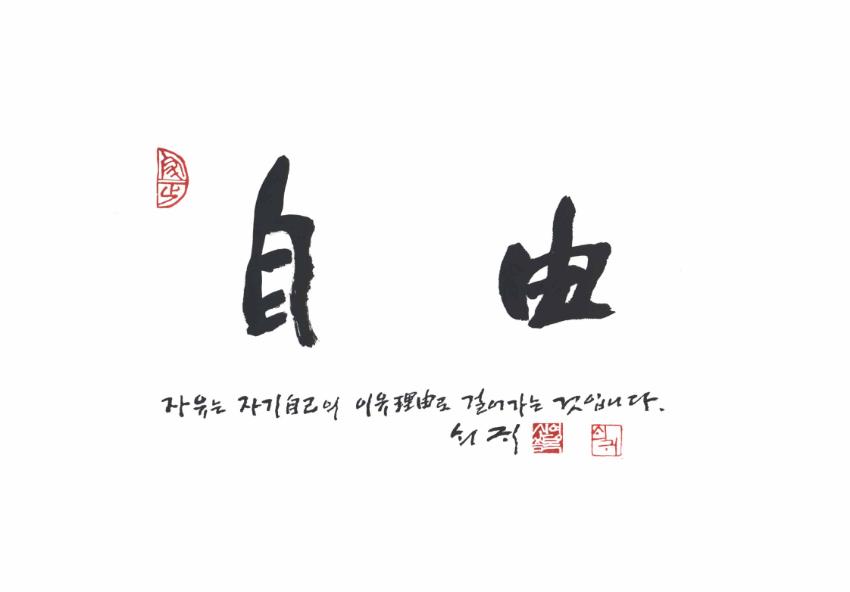 自由
자유는 자기自己의 이유理由로 걸어가는 것입니다.
쇠귀